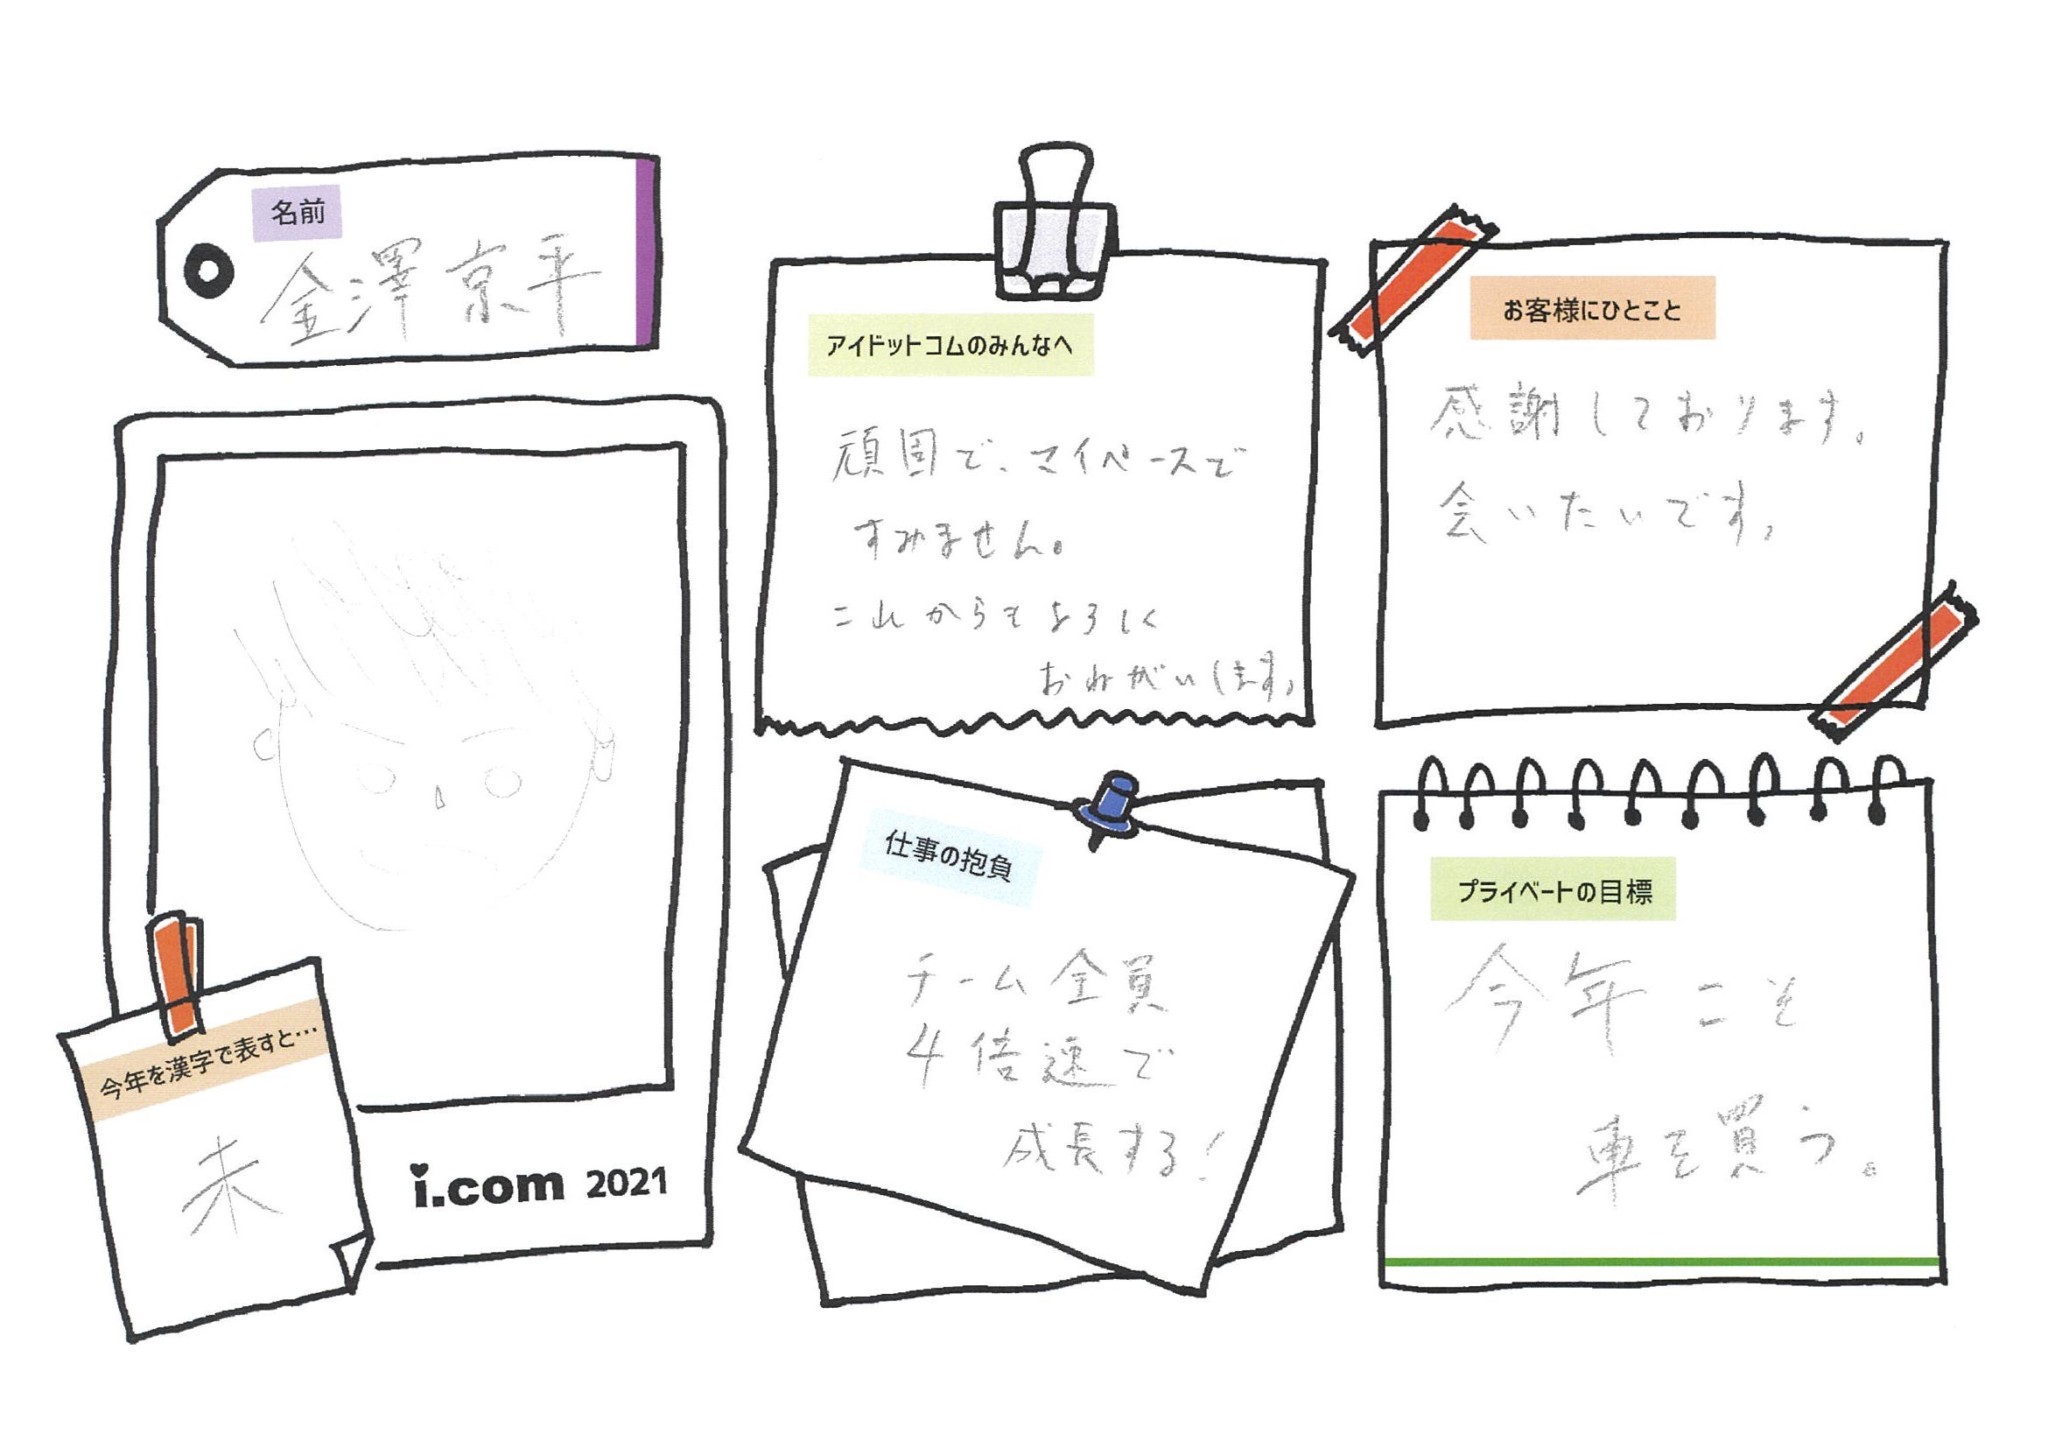 名前
金澤京平
アイドットコムのみんなへ
頑固で、マイペースで
すみません。
これからもよろしく
おねがいします。
お客様にひとこと
感謝しております。
会いたいです。
今年を漢字で表すと…
未
i.com 2021
仕事の抱負
チーム全員
4倍速で
成長する!
プライベートの目標
今年こそ
車を買う。